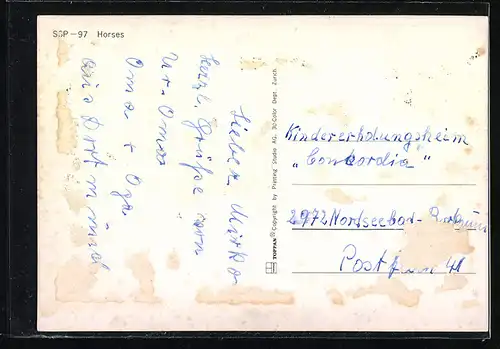 SSP-97 Horses
Lieber Mirko
Herzl. Grüße von
Ur. Oma
Oma + Opa
aus Dortmund
TOPPAN® Copyright by Printing Studio AG, 3D Color Dept. Zurich
Kindererholungsheim
"Concordia"
2972 Nordseebad-Borkum
Postfach 41